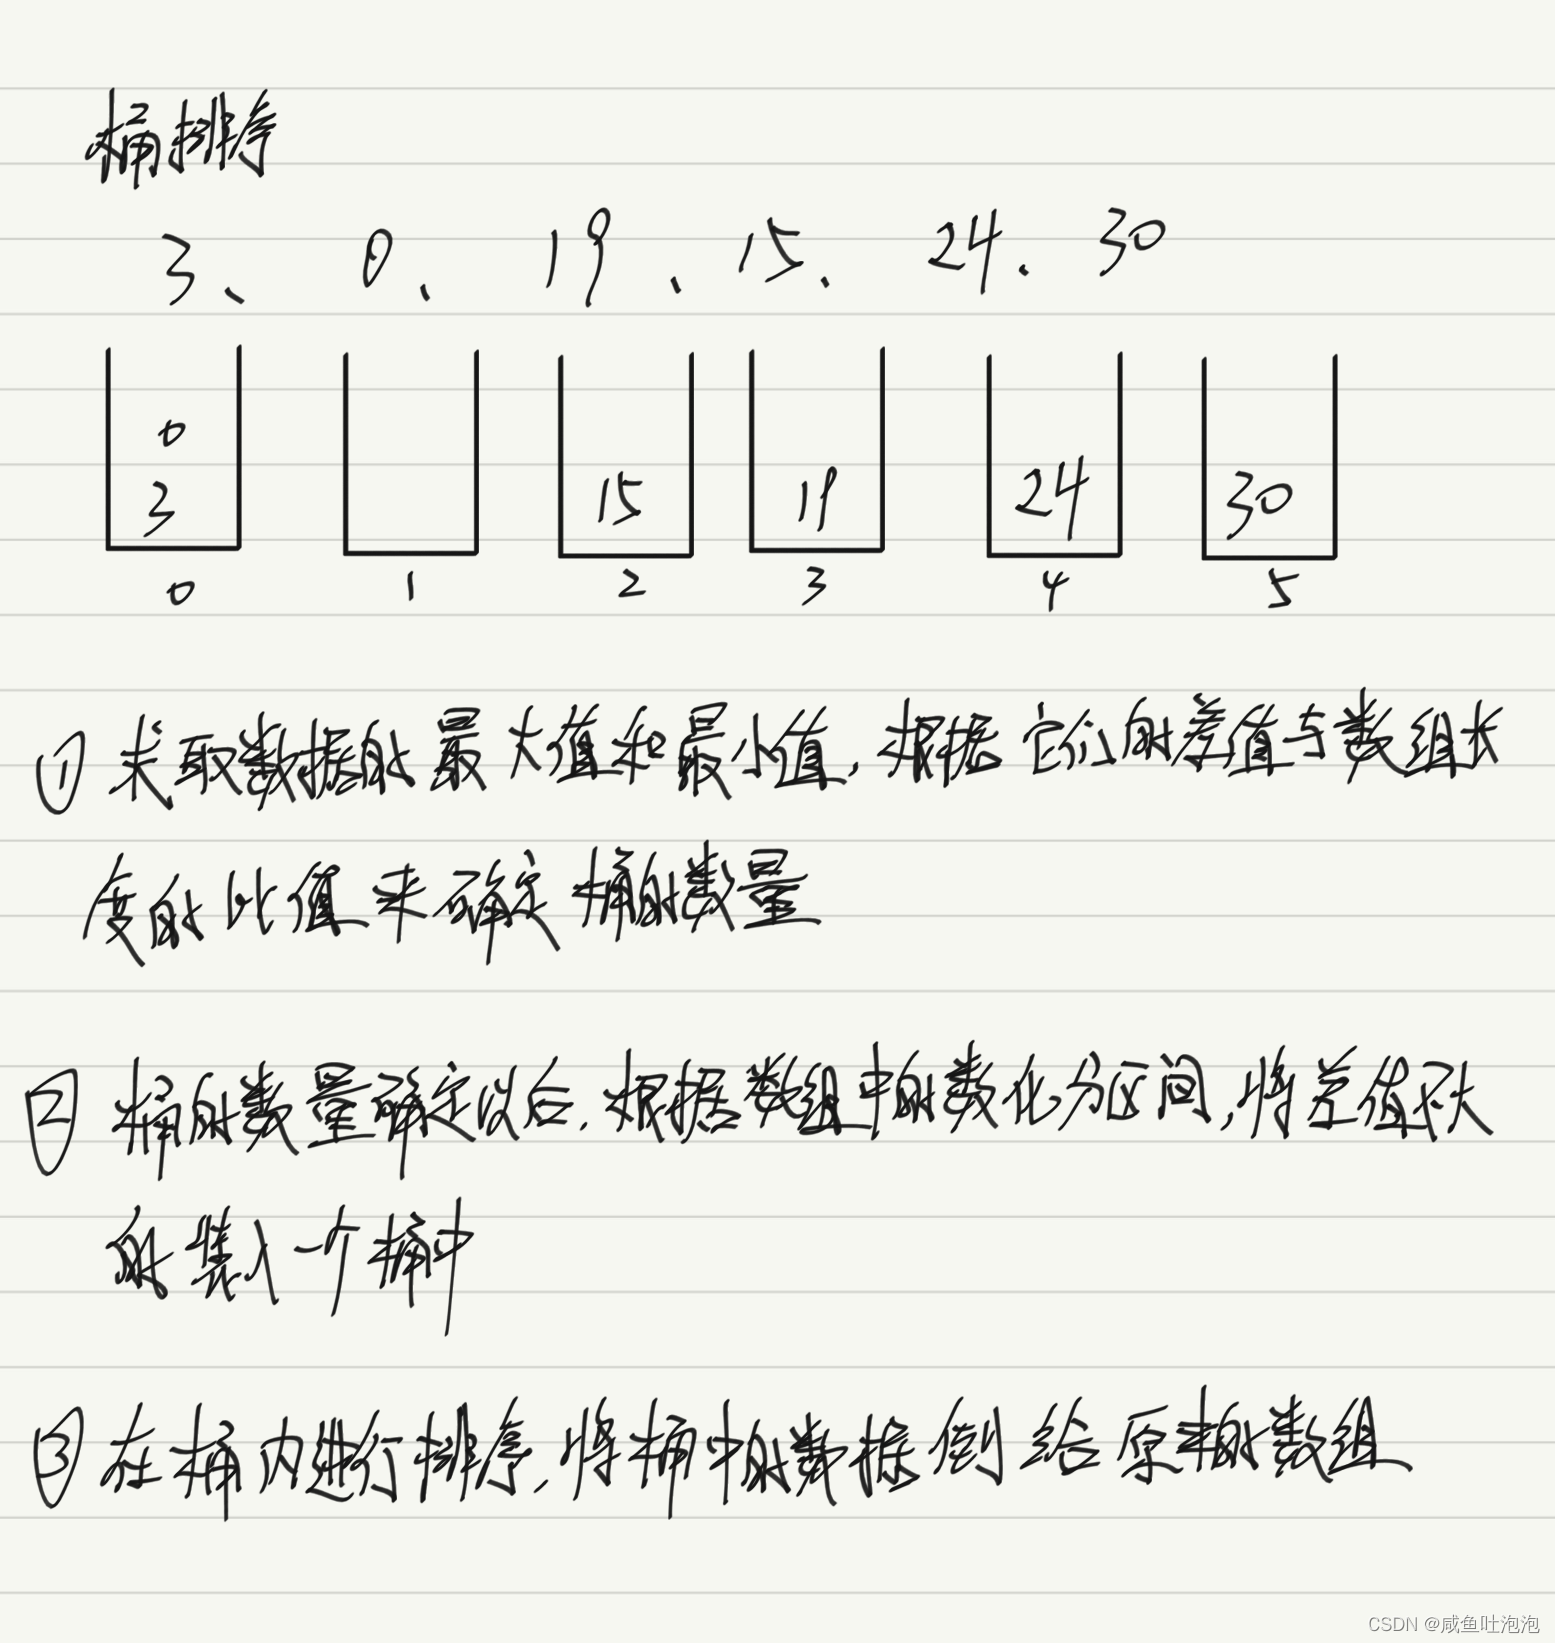 桶排序
3、 0、 19、 15、 24、 30
0
3 15 19 24 30
0 1 2 3 4 5
① 求取数据的最大值和最小值,根据它们的差值与数组长
度的比值来确定桶的数量
② 桶的数量确定以后,根据数组中的数化分区间,将差值不大
的装入一个桶中
③ 在桶内进行排序,将桶中的数据倒给原来的数组
CSDN @咸鱼吐泡泡